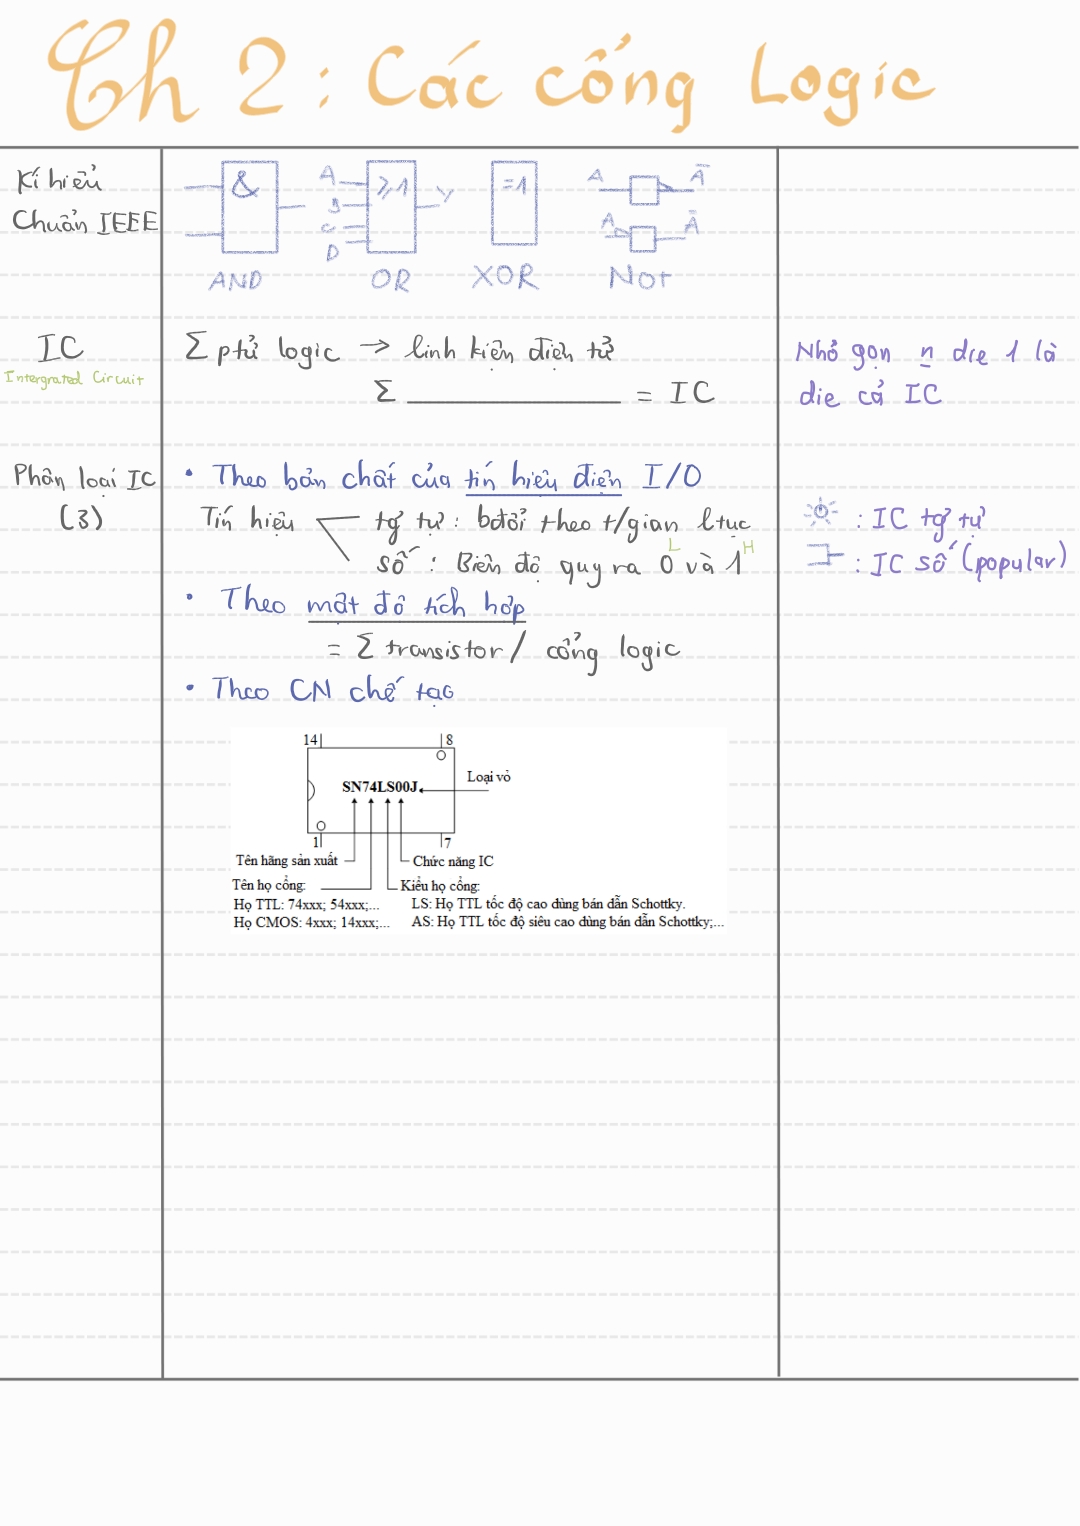 Ch 2 : Các cổng Logic
Kí hiệu
Chuẩn IEEE
&
AND
A
B
C
D
≥1
Y
OR
=1
XOR
A Ā
A Ā
Not
IC
Intergrated Circuit
Σ ptử logic → linh kiện điện tử
Σ = IC
Nhỏ gọn n die 1 là
die cả IC
Phân loại IC
(3)
• Theo bản chất của tín hiệu điện I/O
Tín hiệu
tg tự : bđổi theo t/gian ltục
số : Biên độ quy ra 0 và 1
L H
: IC tg tự
: IC số (popular)
• Theo mật độ tích hợp
= Σ transistor / cổng logic
• Theo CN chế tạo
14 8
SN74LS00J
Loại vỏ
1 7
Tên hãng sản xuất Chức năng IC
Tên họ cổng: Kiểu họ cổng:
Họ TTL: 74xxx; 54xxx;... LS: Họ TTL tốc độ cao dùng bán dẫn Schottky.
Họ CMOS: 4xxx; 14xxx;... AS: Họ TTL tốc độ siêu cao dùng bán dẫn Schottky;...